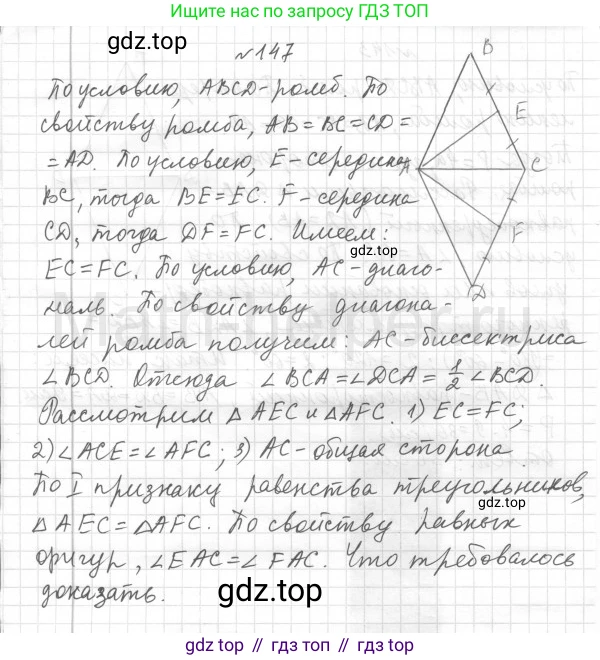 Ищите нас по запросу ГДЗ.ТОП
gdz.top
№147
B
По условию, ABCD-ромб. По
свойству ромба, AB=BC=CD=
E
=AD. По условию, E-середина
A
C
BC, тогда BE=EC. F-середина
F
CD, тогда DF=FC. Имеем:
EC=FC. По условию, AC-диаго-
D
наль. По свойству диагона-
лей ромба получим: AC-биссектриса
∠BCD. Отсюда ∠BCA=∠DCA=1/2 ∠BCD.
Рассмотрим △AEC и △AFC. 1) EC=FC;
2) ∠ACE=∠AFC; 3) AC-общая сторона.
По I признаку равенства треугольников,
△AEC=△AFC. По свойству равных
фигур, ∠EAC=∠FAC. Что требовалось
gdz.top
доказать.
gdz.top // гдз.топ // gdz.top // гдз.топ